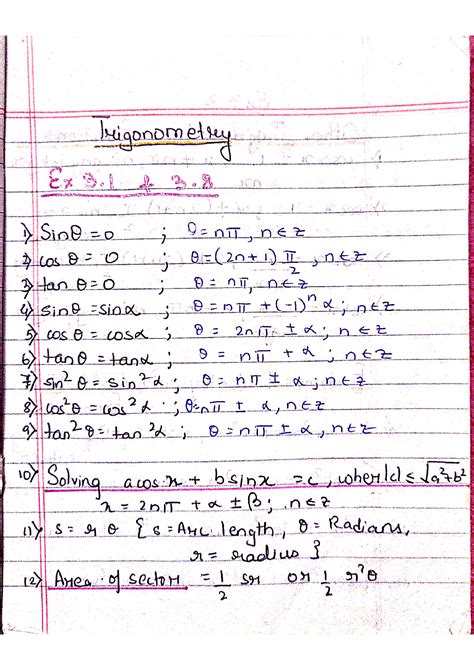 Trigonometry
Ex 3.1 & 3.8
1) Sinθ = 0 ; θ = nπ, n∈z
2) cos θ = 0 ; θ = (2n+1) π/2, n∈z
3) tan θ = 0 ; θ = nπ, n∈z
4) sinθ = sinα ; θ = nπ + (-1)ⁿ α ; n∈z
5) cos θ = cosα ; θ = 2nπ ± α ; n∈z
6) tanθ = tanα ; θ = nπ + α ; n∈z
7) sin²θ = sin²α ; θ = nπ ± α ; n∈z
8) cos²θ = cos²α ; θ=nπ ± α, n∈z
9) tan²θ = tan²α ; θ = nπ ± α, n∈z
10) Solving acos x + bsinx = c, wher |c| ≤ √a²+b²
x = 2nπ + α ± β ; n∈z
11) s = r θ { s = Arc length, θ = Radians,
r = radius }
12) Area of sector = 1/2 sr or 1/2 r²θ